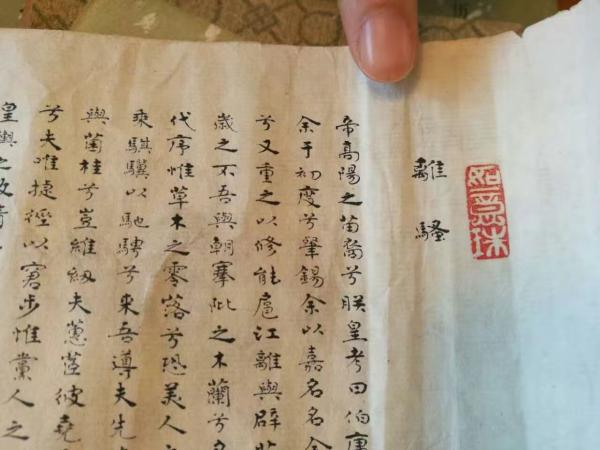 如意珠
離騷
帝高陽之苗裔兮朕皇考曰伯庸
余于初度兮肇錫余以嘉名名余
兮又重之以修能扈江離與辟芷
歲之不吾與朝搴阰之木蘭兮夕
代序惟草木之零落兮恐美人之
乘騏驥以馳騁兮來吾導夫先
與菌桂兮豈維紉夫蕙茝彼堯
兮夫唯捷徑以窘步惟黨人之
皇輿之敗績